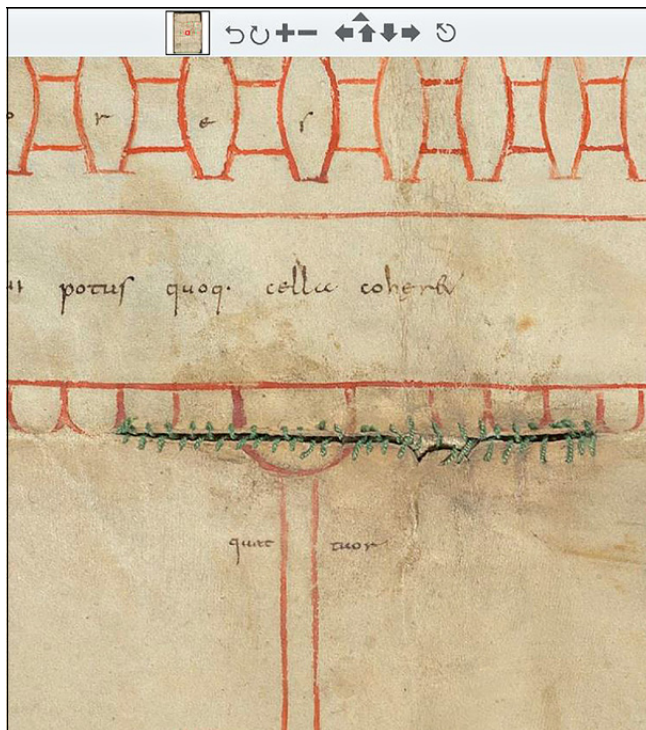 r e ſ
potuſ quoq· cella coher&
quat tuor